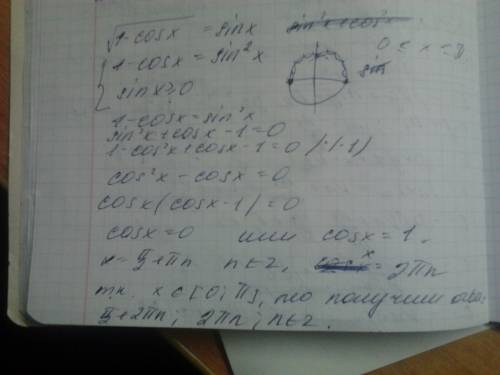 √1-cosx = sinx
1-cosx = sin²x 0 ≤ x ≤ π
sinx≥0
1-cosx=sin²x
sin²x+cosx-1=0
1-cos²x+cosx-1=0 /·(-1)
cos²x - cosx = 0
cosx(cosx-1)=0
cosx=0 или cosx=1.
x=π/2+πn n∈Z, x = 2πn
т.к. x∈[0;π], то получим
π/2+2πn; 2πn; n∈Z.